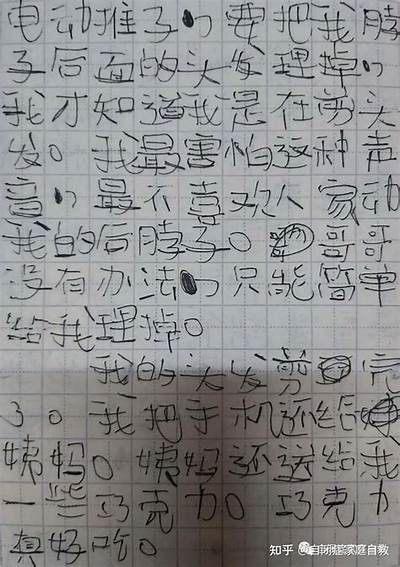 电动推子，要把我脖
子后面的头发理掉，
我才知道我是在剪头
发。我最害怕这种声
音，最不喜欢人家动
我的后脖子。哥哥
没有办法，只能简单
给我理掉。
我的头发剪完
了。我把手机还给
姨妈。姨妈还送给我
一些巧克力。巧克力
真好吃。
知乎 @自闭症家庭自教